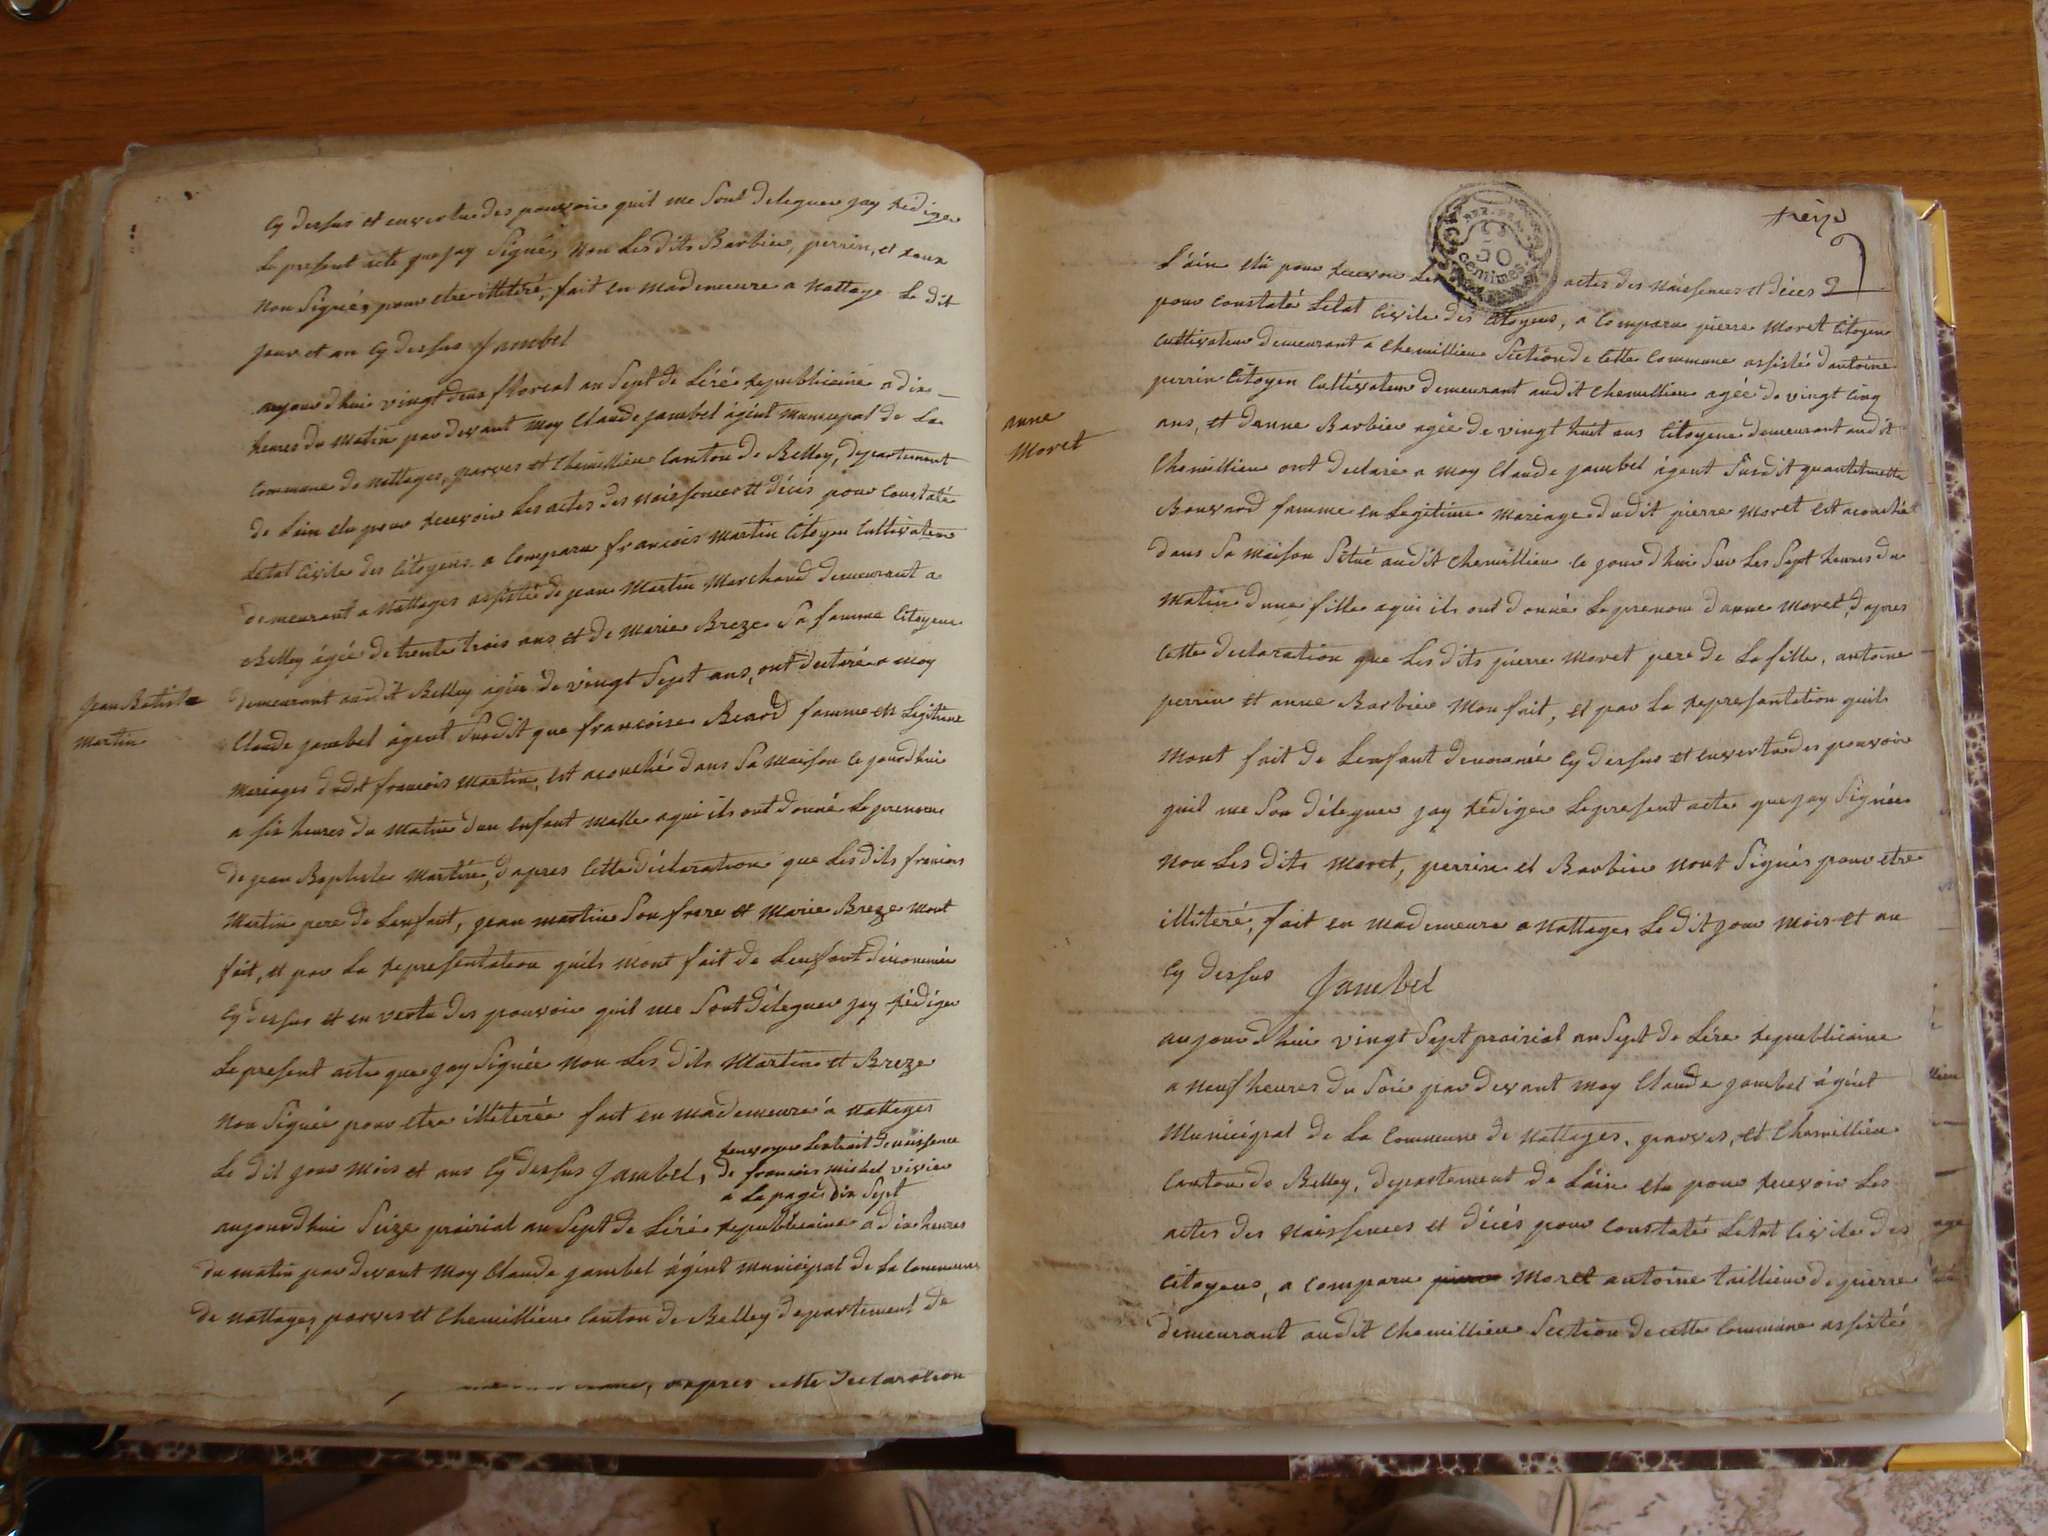 Cy dessus et en vertu des pouvoir quil me sont deleguer jay rediger
le present acte que jay signéz non les dits Barbier, perrin, et roux
non signéz pour etre illitéré, fait en mademeure a nattage le dit
jour et an cy dessus Jambel
aujourdhui vingt deux floreal an sept de Léré republicaine a dix
heures du matin par devant moy Claude jambel agént municipal de La
Commune de nattages, parves et Chemillieu Canton de Belley, departement
de Lain elu pour recevoir les actes des naissences et décés pour constaté
Letat Civile des Citoyens. a comparu francois martin Citoyen Cultivateur
demeurant a nattages assisté de jean martin marchand demeurant a
Belley agée de trente trois ans et de marie Breze sa famme Citoyene
demeurant audit Belley agée de vingt sept ans, ont declaré a moy
jean Batiste
martin
Claude jambel agent susdit que francoise Beard famme en Legitime
mariages dudit francois martin, est acouché dans sa maison ce jourdhui
a six heures du matin dun enfant malle aqui ils ont donné le prenom
de jean Baptiste martin, dapres cette déclaration que les dits francois
martin pere de Lenfant, jean martin son frere et marie Breze mont
fait, et par la representation quils mont fait de Lenfant dénommée
Cy dessus et en vertu des pouvoir quil me sont déleguer jay rédiger
le present acte que jay signée non les dits martin et Breze
non signée pour etre illiterée fait en mademeure a nattages
le dit jour mois et ans Cy dessus Jambel,
renvoyer Lextrait de naissence
de francois michel vivier
a la page dix sept
aujourdhui seize prairial an sept de Léré republicaine a dix heures
du matin par devant moy Claude jambel agént municipal de la Commune
de nattages, parves et Chemillieu Canton de Belley departement de
apres cette declaration
treize
Láin élü pour recevoir Les actes des naissences et déces
REP. FRA.
50
centimes
pour constaté Letat Civile des Citoyens, a comparu pierre moret Citoyen
cultivateur demeurant a Chemillieu section de cette commune assisté dantoine
perrin Citoyen Cultivateur demeurant audit Chemillieu agée de vingt cinq
anne
moret
ans, et danne Barbier agée de vingt huit ans Citoyene demeurant audit
Chemillieu ont declaré a moy Claude jambel agent susdit quantelmette
Bouvard famme en Legitime mariage dudit pierre moret est acouchée
dans sa maison situé audit Chemillieu ce jourdhui sur les sept heures du
matin dune fille aqui ils ont donné le prenom danne moret, dapres
Cette declaration que les dits pierre moret pere de la fille, antoine
perrin et anne Barbier mon fait, et par la representation quils
mont fait de Lenfant denommé Cy dessus et en vertu des pouvoir
quil me son déleguer jay rédiger le present acte que jay signée
non les dits moret, perrin et Barbier nont signés pour etre
illiteré, fait en mademeure a nattages le dit jour mois et an
Cy dessus Jambel
aujourdhui vingt sept prairial an sept de Lére republicaine
a neuf heures du soir par devant moy Claude jambel agént
municipal de la Commune de nattages, parves, et Chemillieu
Canton de Belley, departement de Láin elu pour recevoir Les
actes des naissences et décés pour constaté Letat Civile des
Citoyens, a comparu moret antoine taillieur de pierre
demeurant audit Chemillieu section de cette commune assisté